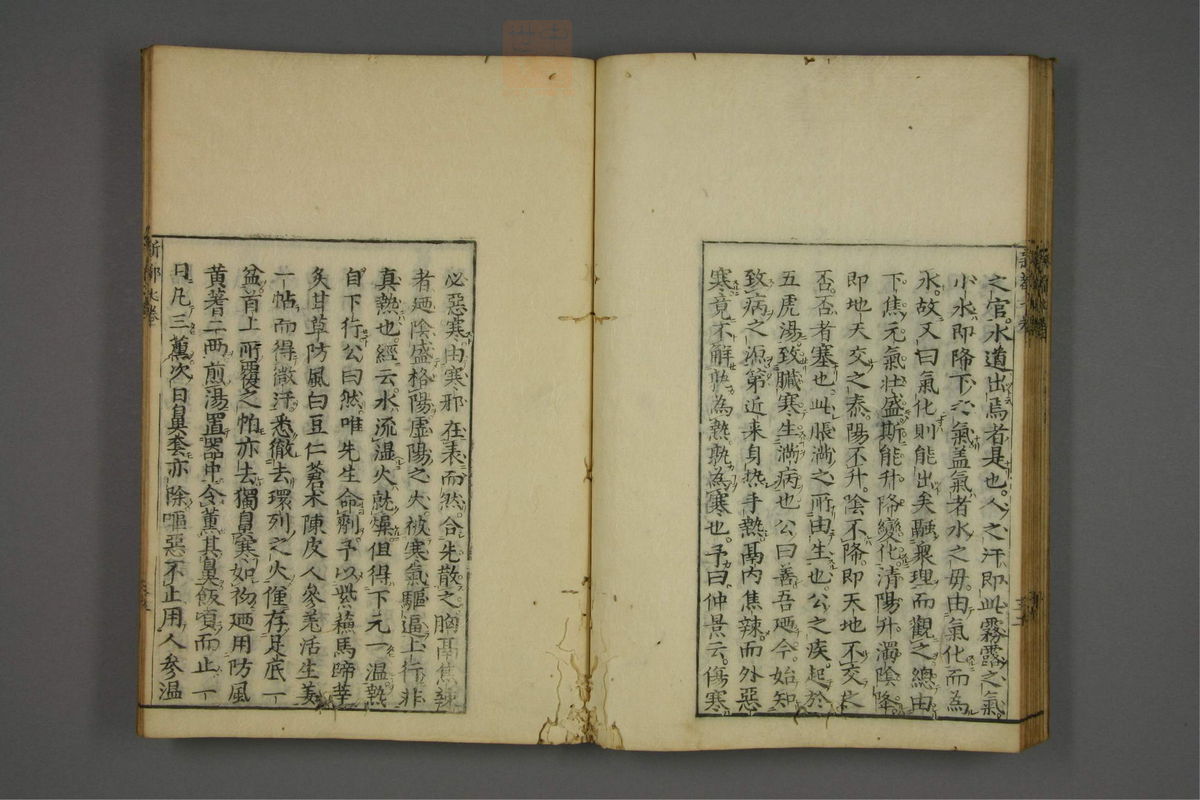 之官水道出焉者是也人之汗即此霧露之氣
小水即降下之氣盖氣者水之母由氣化而為
水故又曰氣化則能出矣驗衆理而觀之總由
下焦元氣壯盛斯能升降變化清陽升濁陰降
即地天交之泰陽不升陰不降即天地不交之
否否者塞也此脹満之所由生也公之疾起於
五虎湯致臟寒生満病也公曰善吾廼今始知
致病之源第近来身热手熱鬲内焦辣而外惡
寒竟不解孰為熱孰為寒也予曰仲景云傷寒
必惡寒由寒邪在表而然合先散之胸鬲焦辣
者廼陰盛格陽虛陽之火被寒氣驅逼上行非
真熱也經云水流湿火就燥但得下元一温熱
自下行公曰然唯先生命劑予以紫蘓馬蹄莘
炙甘草防風白豆仁蒼术陳皮人參羌活生姜
一帖而得微汗悉徹去環列之火僅存足底一
盆首上所覆之帕亦去獨鼻寒如初廼用防風
黃蓍二两煎湯置器中令薫其鼻飯頃而止一
日凡三薫次日鼻套亦除嘔惡不止用人參温